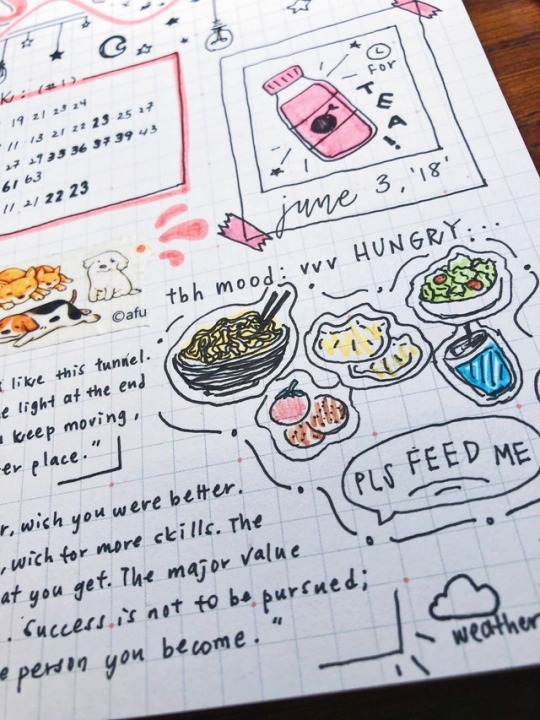 K: (#1)
19 21 23 24
11 · 13 21 22 23 25 27
27 29 33 36 37 39 43
61 63
11 21 22 23
FOR
TEA!
june 3, '18'
©afu
tbh mood: vvv HUNGRY...
like this tunnel.
light at the end
keep moving,
place."
PLS FEED ME
, wish you were better.
, wich for more skills. The
at you get. The major value
. Success is not to be pursued;
person you become."
weather